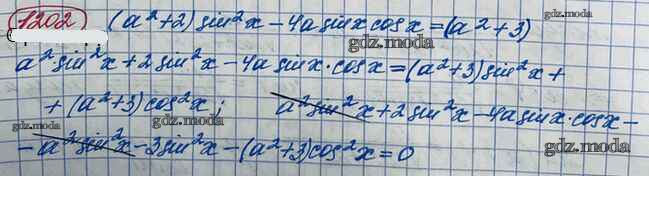 1202 (a²+2) sin²x - 4a sinx cosx = (a²+3)
gdz.moda gdz.moda
a² sin²x + 2 sin²x - 4a sinx · cosx = (a²+3) sin²x +
+ (a²+3) cos²x; a² sin²x + 2 sin²x - 4a sinx · cosx -
gdz.moda gdz.moda
- a² sin²x - 3 sin²x - (a²+3) cos²x = 0
gdz.moda gdz.moda